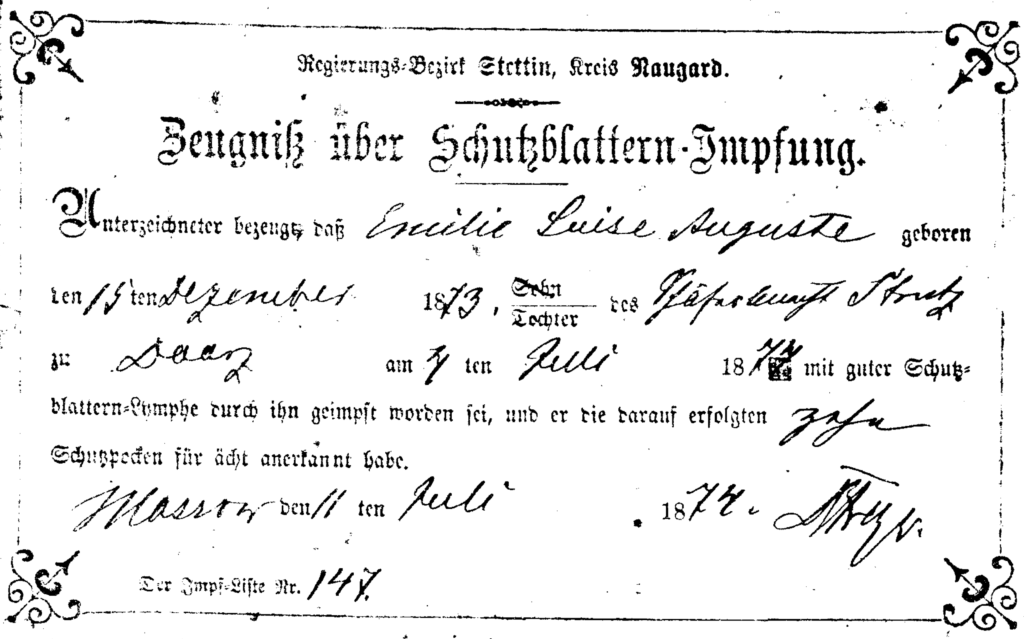 Regierungs-Bezirk Stettin, Kreis Naugard.
Zeugniß über Schutzblattern-Impfung.
Unterzeichneter bezeugt, daß Emilie Luise Auguste geboren
den 15 ten Dezember 1873, Sohn/Tochter des Schäferknecht
zu Daarz am 4 ten Juli 1874 mit guter Schutz-
blattern-Lymphe durch ihn geimpft worden sei, und er die darauf erfolgten zehn
Schutzpocken für ächt anerkannt habe.
Massow den 11 ten Juli 1874.
Der Impf-Liste Nr. 147.